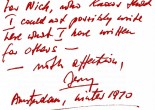 for Nick, who knows that
I could not possibly write
here what I have written
for others —
— with affection,
Jerry
Amsterdam, winter 1970